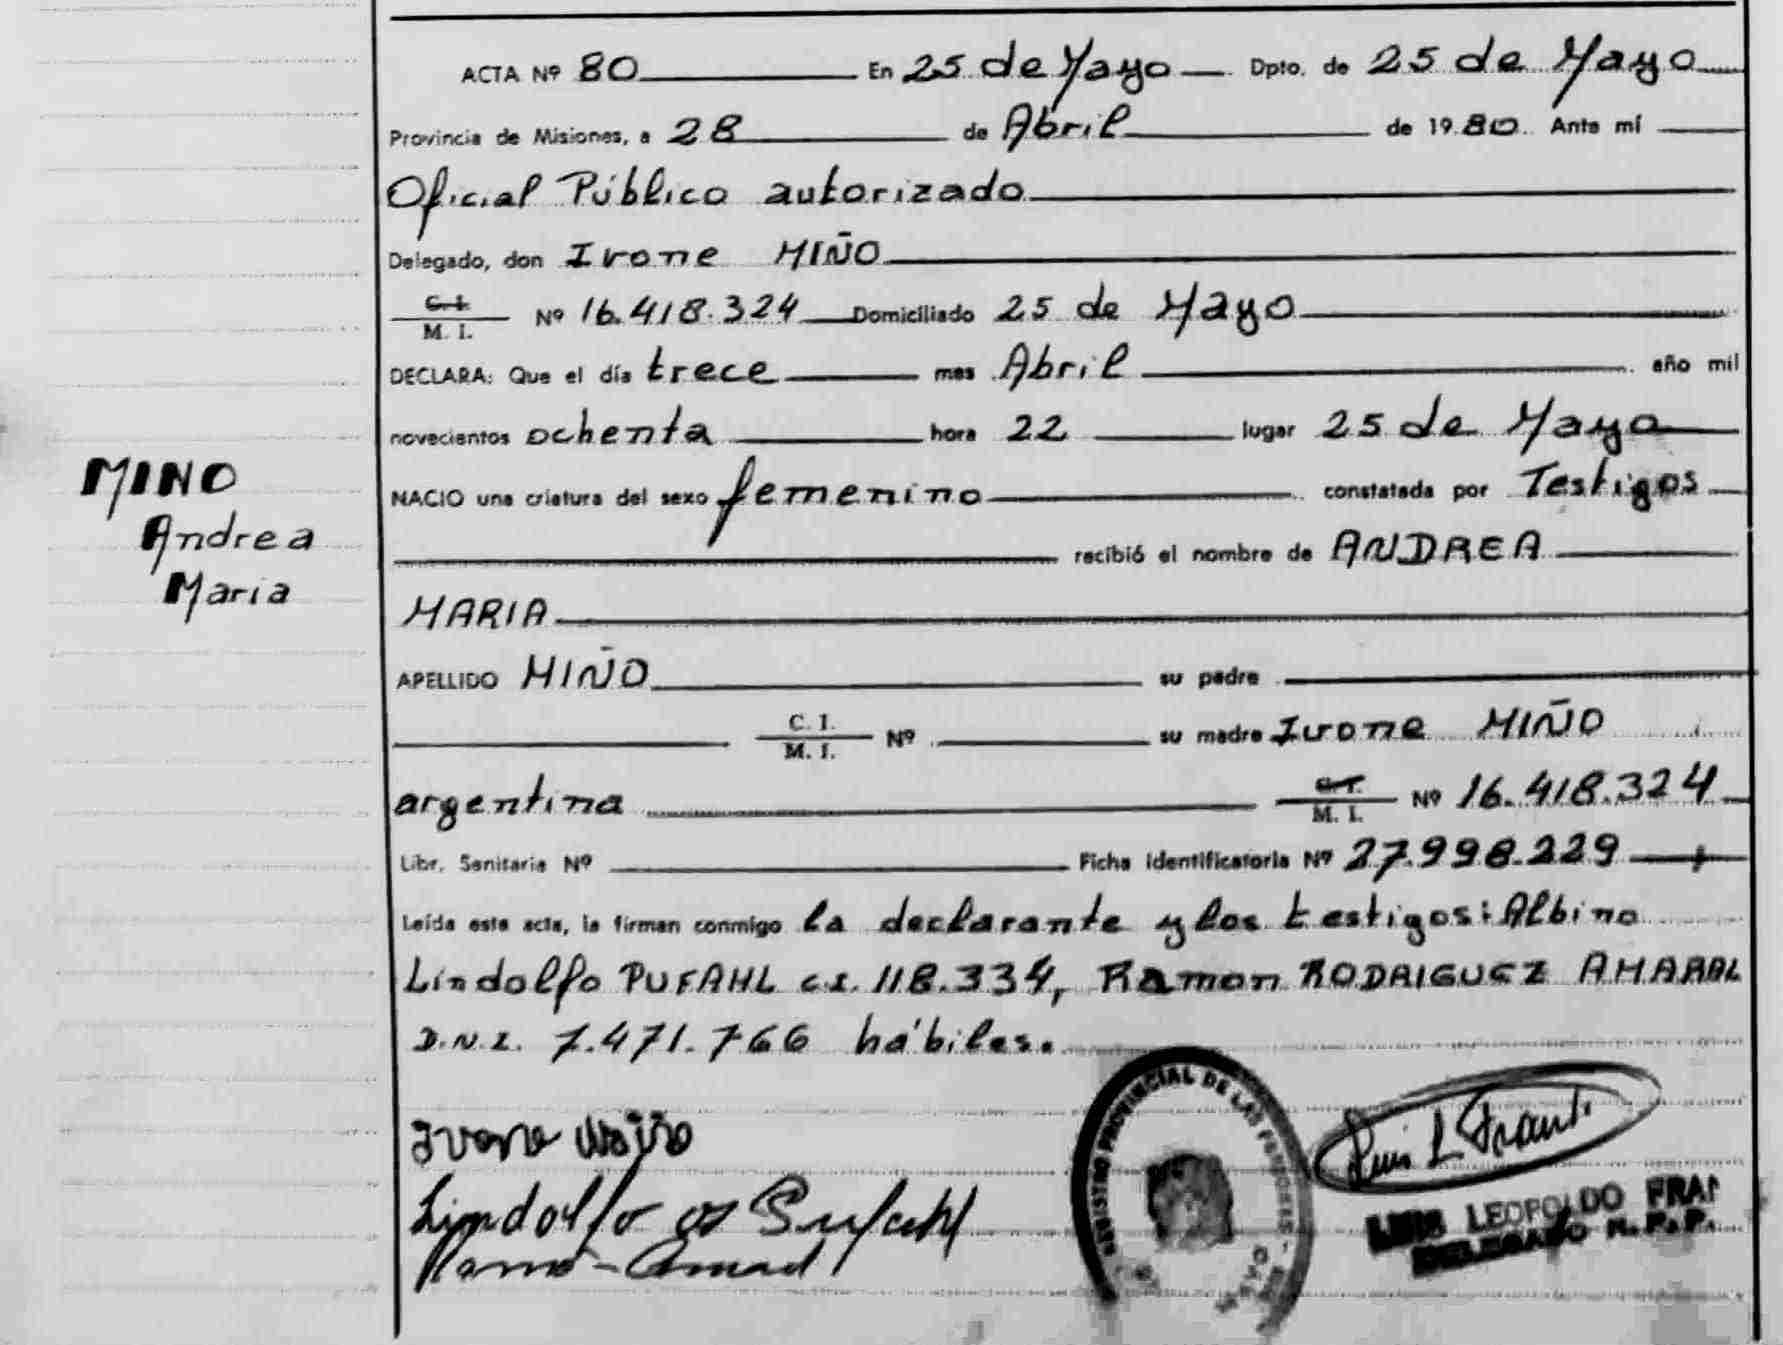 ACTA Nº 80 En 25 de Mayo Dpto. de 25 de Mayo
Provincia de Misiones, a 28 de Abril de 1980. Ante mí
Oficial Público autorizado
Delegado, don Ivone MIÑO
C. I.
M. I. Nº 16.418.324 Domiciliado 25 de Mayo
DECLARA: Que el día trece mes Abril año mil
novecientos ochenta hora 22 lugar 25 de Mayo
MINO
Andrea
Maria
NACIO una criatura del sexo femenino constatada por Testigos
recibió el nombre de ANDREA
MARIA
APELLIDO MIÑO su padre
C. I.
M. I. Nº su madre Ivone MIÑO
argentina C. I.
M. I. Nº 16.418.324
Libr. Sanitaria Nº Ficha Identificatoria Nº 27.998.229
Leída este acta, la firman conmigo la declarante y los testigos: Albino
Lindolfo PUFAHL c.I. 118.334, Ramon RODRIGUEZ AMARAL
D.N.I. 7.471.766 hábiles.
Ivone Miño
Lindolfo Pufahl
REGISTRO PROVINCIAL DE LAS PERSONAS
Luis L Frant
LUIS LEOPOLDO
DELEGADO R.P.P.